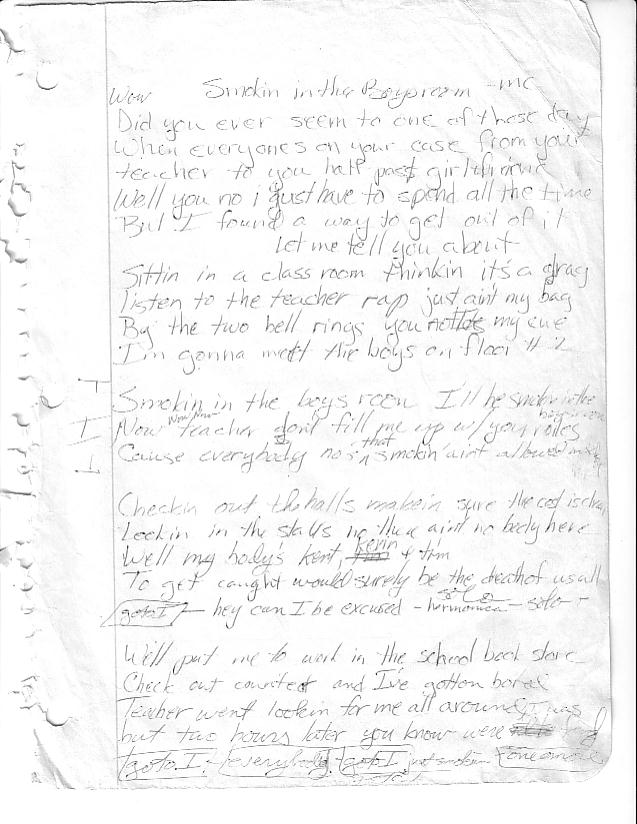 Wow Smokin in the Boysroom - MC
Did you ever seem to one of those day
When everyones on your case from your
teacher to you half past girlfriend
Well you no i just have to spend all the time
But I found a way to get out of it
Let me tell you about
Sittin in a class room thinkin it's a drag
Listen to the teacher rap just ain't my bag
By the two bell rings you no its my cue
I'm gonna meet the boys on floor # 2
Smokin in the boys room I'll be smokin in the boys room
Now Now Now teacher don't fill me up w/ your rules
Cause everybody no's that smokin' ain't allowed
Checkin out the halls makein sure the cost is clear
Lookin in the stalls no there ain't no body here
Well my body's kent, kevin & tim
To get caught would surely be the death of us all
goto I - hey can I be excused - solo - solo -
Well put me to work in the school book store
Check out counter and I've gotton bored
Teacher went lookin for me all around I was
but two hours later you know were
goto I - everybody goto I just smokin one more